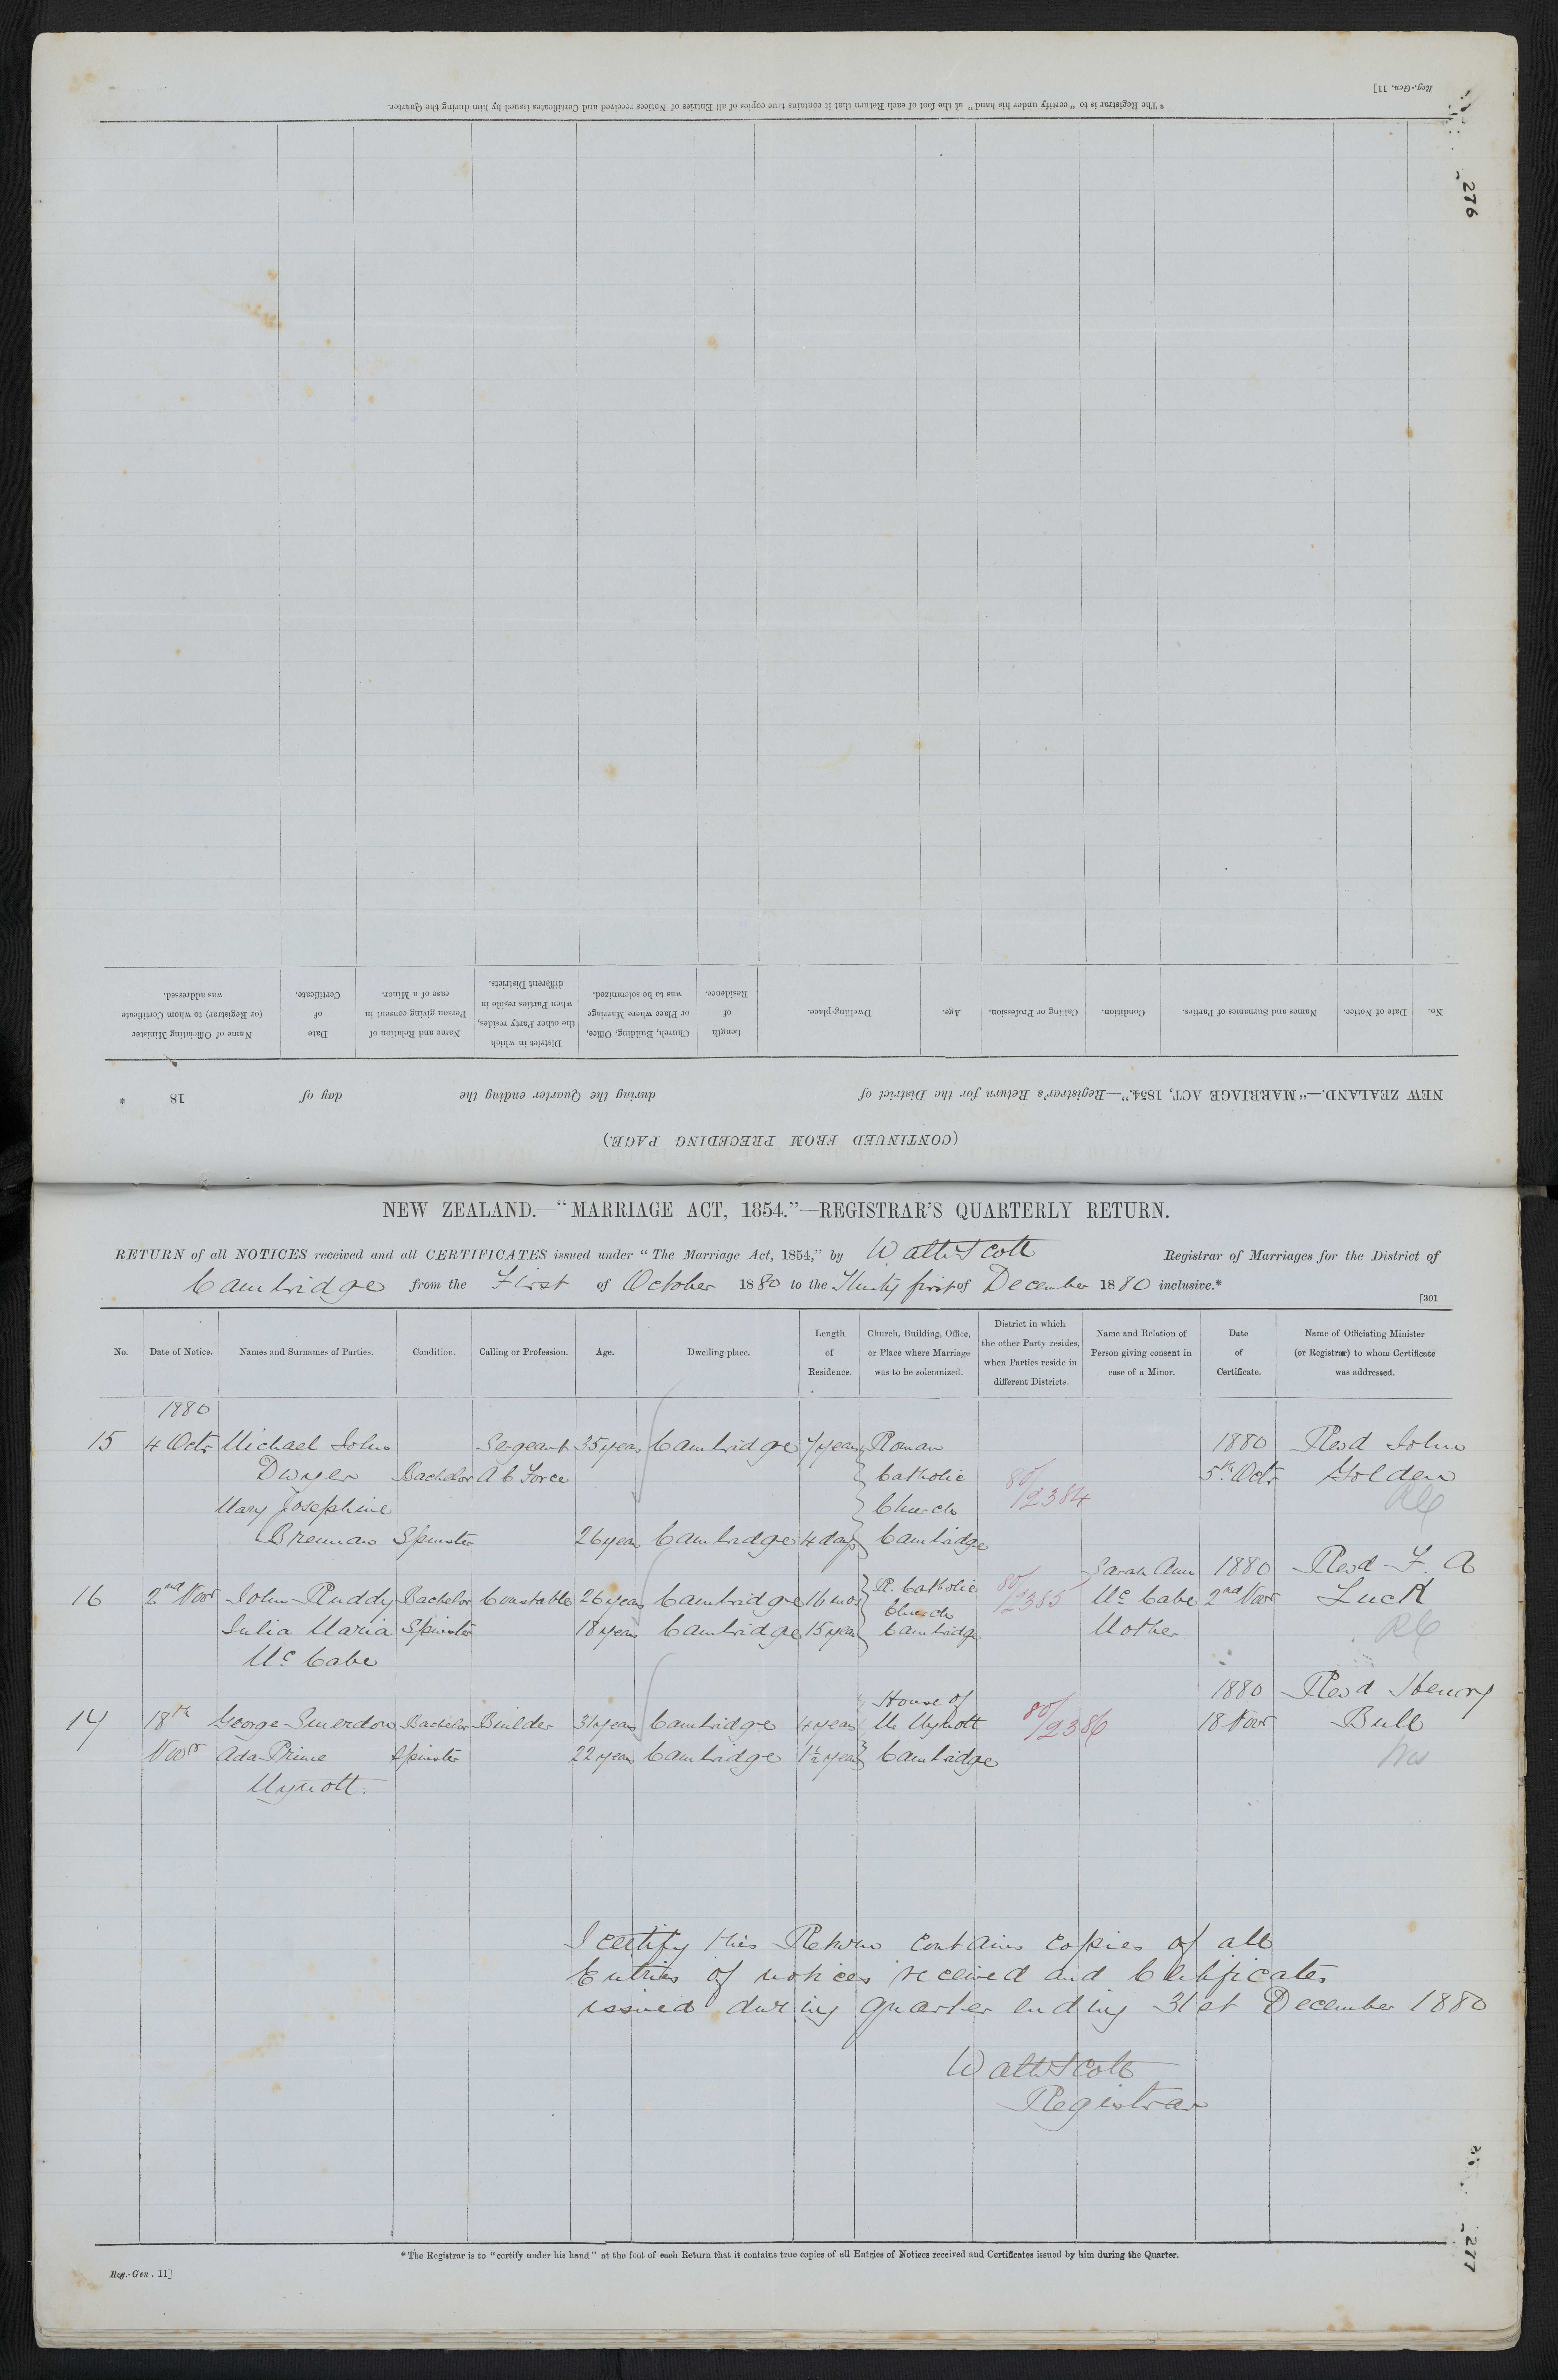 Reg.-Gen. 11]
* The Registrar is to "certify under his hand" at the foot of each Return that it contains true copies of all Entries of Notices received and Certificates issued by him during the Quarter.
276
(CONTINUED FROM PRECEDING PAGE.)
NEW ZEALAND.—"MARRIAGE ACT, 1854."—Registrar's Return for the District of during the Quarter ending the day of 18 *
No. Date of Notice. Names and Surnames of Parties. Condition. Calling or Profession. Age. Dwelling-place. Length of Residence. Church, Building, Office, or Place where Marriage was to be solemnized. District in which the other Party resides, when Parties reside in different Districts. Name and Relation of Person giving consent in case of a Minor. Date of Certificate. Name of Officiating Minister (or Registrar) to whom Certificate was addressed.
NEW ZEALAND.—"MARRIAGE ACT, 1854."—REGISTRAR'S QUARTERLY RETURN.
RETURN of all NOTICES received and all CERTIFICATES issued under "The Marriage Act, 1854," by Walter Scott Registrar of Marriages for the District of
Cambridge from the First of October 1880 to the Thirty first of December 1880 inclusive.*
[301
No. Date of Notice. Names and Surnames of Parties. Condition. Calling or Profession. Age. Dwelling-place. Length of Residence. Church, Building, Office, or Place where Marriage was to be solemnized. District in which the other Party resides, when Parties reside in different Districts. Name and Relation of Person giving consent in case of a Minor. Date of Certificate. Name of Officiating Minister (or Registrar) to whom Certificate was addressed.
1880
15 4 Octr Michael John Sergeant 35 years Cambridge 7 years Roman 1880 Revd John
Dwyer Bachelor A C Force Catholic 80/2384 5th Octr Golden
Mary Josephine Church RC
Brennan Spinster 26 years Cambridge 4 days Cambridge
Sarah Ann 1880 Revd F. A
16 2nd Novr John Ruddy Bachelor Constable 26 years Cambridge 16 mos R. Catholic Church 80/2385 Mc Cabe 2nd Novr Luck
Julia Maria Spinster 18 years Cambridge 15 years Cambridge Mother RC
Mc Cabe
1880 Revd Henry
17 18th George Smerdon Bachelor Builder 31 years Cambridge 4 years House of Mr Mynott 80/2386 18 Novr Bull
Novr Ada Prime Spinster 22 years Cambridge 1½ years Cambridge
Mynott.
I certify this Return contains copies of all
Entries of notices received and Certificates
issued during quarter ending 31st December 1880
Walter Scott
Registrar
* The Registrar is to "certify under his hand" at the foot of each Return that it contains true copies of all Entries of Notices received and Certificates issued by him during the Quarter.
Reg.-Gen. 11]
277